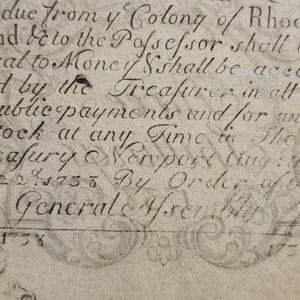 due from yᵉ Colony of Rho
nd &c to the Possessor shall
al to Money & shall be acc
d by the Treasurer in all
ublic payments and for an
tock at any Time in The
easury Newport Aug:
22ᵈ: 1738 By Order of
General Assembly
1738
173